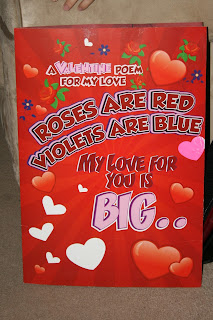 A VALENTINE POEM
FOR MY LOVE
ROSES ARE RED
VIOLETS ARE BLUE
MY LOVE FOR
YOU IS
BIG..